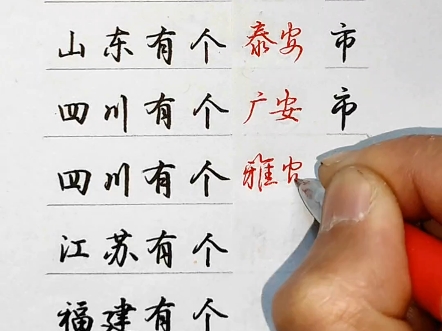 山东有个泰安市
四川有个广安市
四川有个雅
江苏有个
福建有个